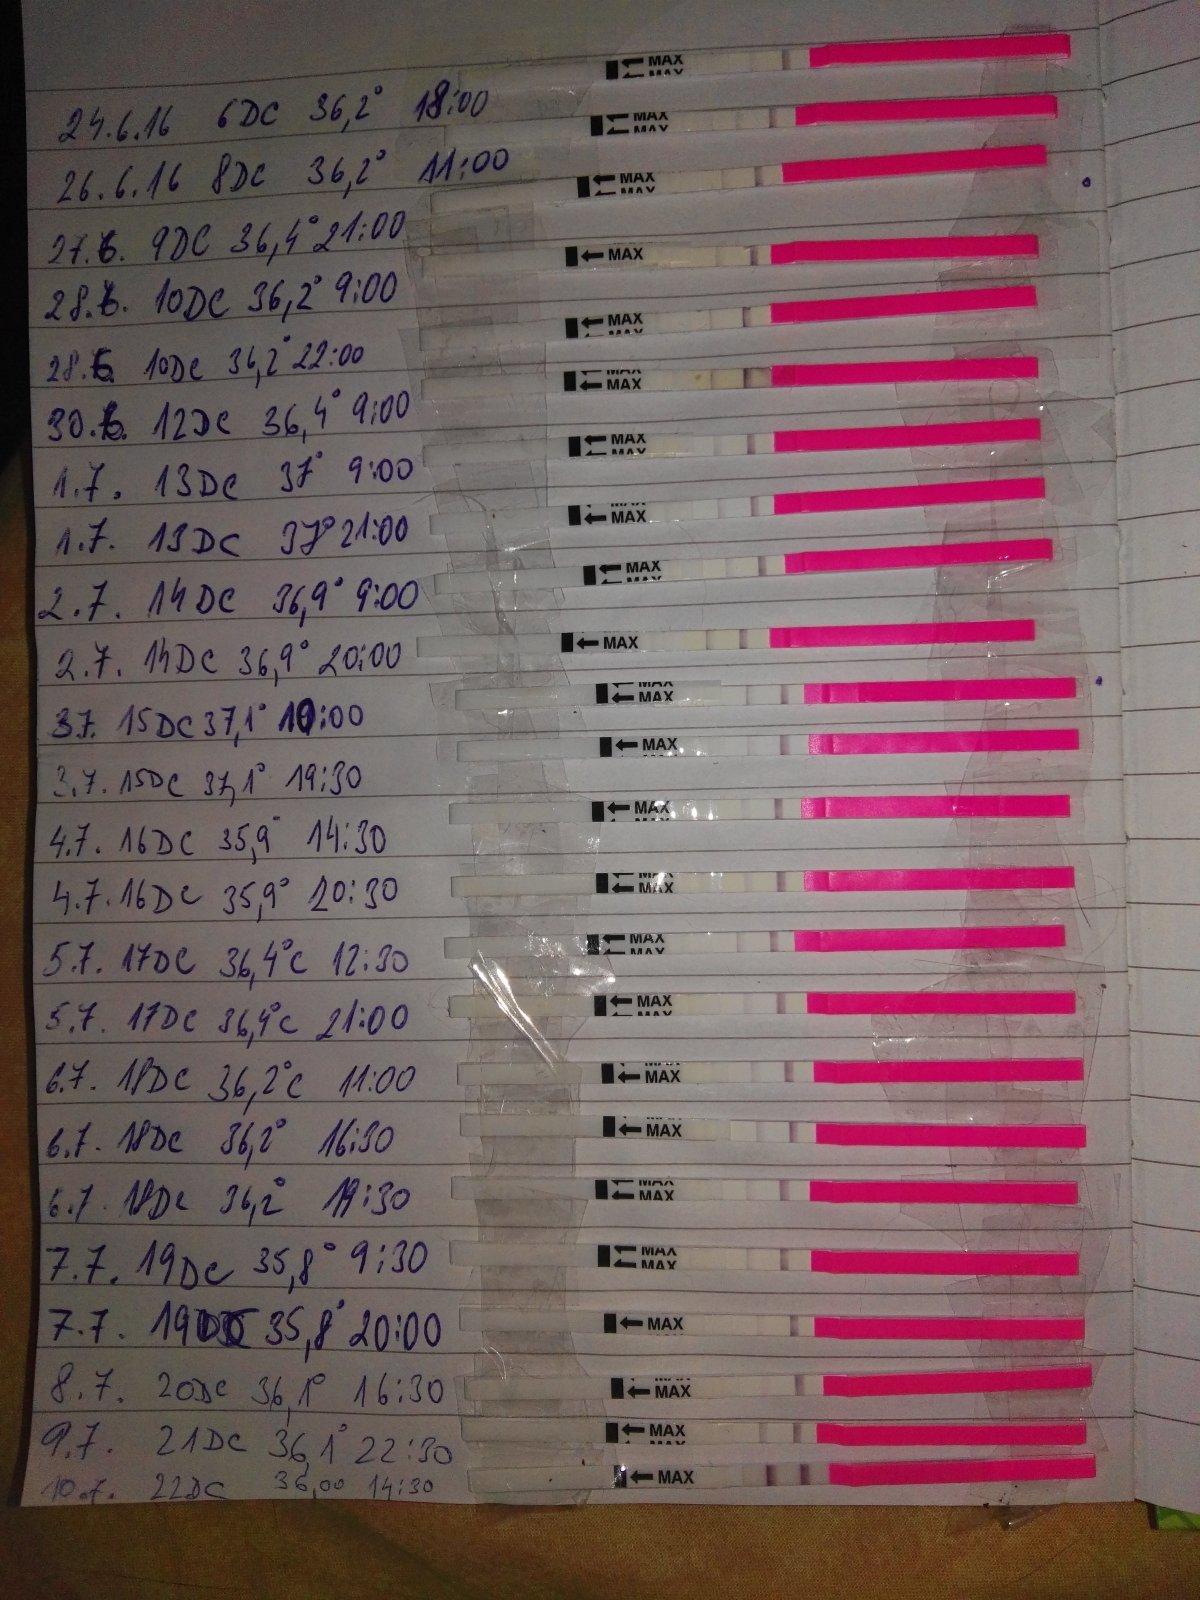 MAX
MAX
24.6.16 6DC 36,2° 18:00
MAX
MAX
26.6.16 8DC 36,2° 11:00
MAX
MAX
27.6. 9DC 36,4° 21:00
MAX
28.6. 10DC 36,2° 9:00
MAX
MAX
28.6. 10DC 36,2° 22:00
MAX
MAX
30.6. 12DC 36,4° 9:00
MAX
MAX
1.7. 13DC 37° 9:00
MAX
MAX
1.7. 13DC 37° 21:00
MAX
MAX
2.7. 14DC 36,9° 9:00
MAX
2.7. 14DC 36,9° 20:00
MAX
MAX
3.7. 15DC 37,1° 10:00
MAX
3.7. 15DC 37,1° 19:30
MAX
MAX
4.7. 16DC 35,9° 14:30
MAX
MAX
4.7. 16DC 35,9° 20:30
MAX
MAX
5.7. 17DC 36,4°C 12:30
MAX
MAX
5.7. 17DC 36,4°C 21:00
MAX
MAX
6.7. 18DC 36,2°C 11:00
MAX
MAX
6.7. 18DC 36,2° 16:30
MAX
MAX
6.7. 18DC 36,2° 19:30
MAX
MAX
7.7. 19DC 35,8° 9:30
MAX
7.7. 19DC 35,8° 20:00
MAX
MAX
8.7. 20DC 36,1° 16:30
MAX
MAX
9.7. 21DC 36,1° 22:30
MAX
10.7. 22DC 36,00 14:30